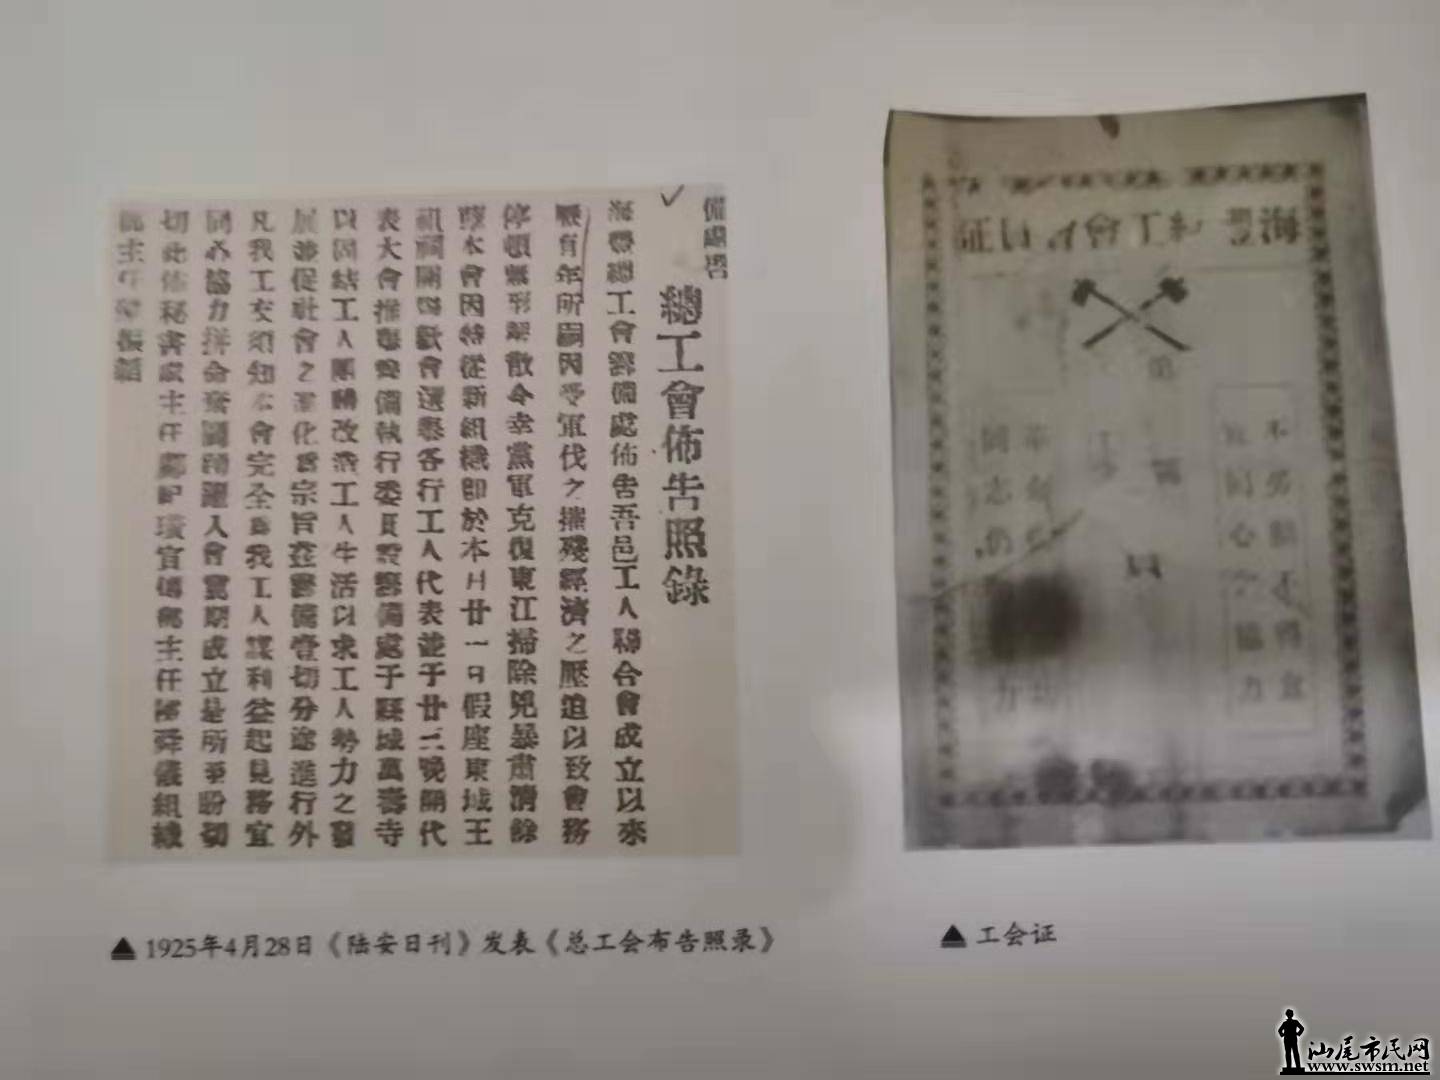 備處啓
總工會佈告照錄
海豐總工會籌備處佈告吾邑工人聯合會成立以來
歷有年所嗣因受軍伐之摧殘經濟之壓迫以致會務
停頓無形解散今幸黨軍克復東江掃除兇暴肅清餘
孽本會因特從新組織即於本月廿一日假座東城王
祖祠開懇歡會選舉各行工人代表並于廿三晚開代
表大會推舉籌備執行委員設籌備處于縣城萬壽寺
以因結工人團體改造工人生活以求工人勢力之發
展並促社會之進化爲宗旨茲籌備當切分途進行外
凡我工友須知本會完全爲我工人謀利益起見務宜
同心協力拼命奮鬪踴躍入會冀期成立是所至盼切
切此佈秘書處主任鄭記宣傳部主任陳舜儀組織
部主任
海豐總工會會員證
第
號
不勞動不得食
宜同心協力
革命
同志仍
力
▲ 1925年4月28日《陆安日刊》发表《总工会布告照录》
▲ 工会证
汕尾市民网
www.swsm.net